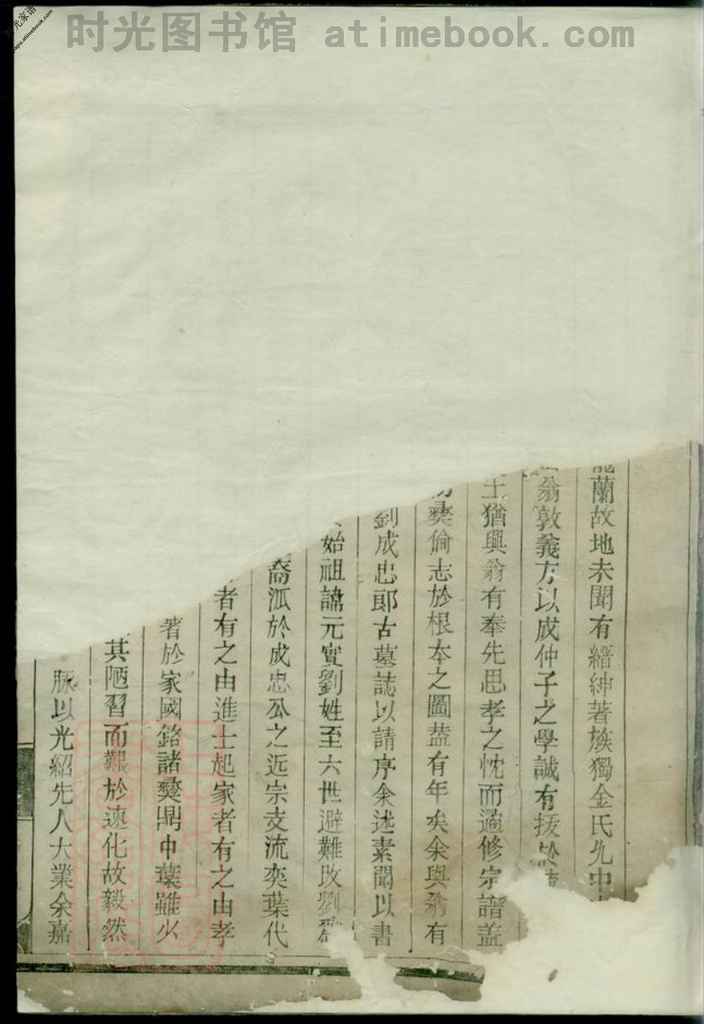 时光图书馆 atimebook.com
蘭故地未聞有縉紳著族獨金氏允中
翁敦義方以成仲子之學誠有拔
士猶興翁有奉先思孝之忱而適修宗譜蓋
彛倫志於根本之圖蓋有年矣余與翁有
劉成忠郎古墓誌以請序余述素聞以書
始祖諱元實劉姓至六世避難改劉爲
裔派於成忠公之近宗支流奕葉代
者有之由進士起家者有之由孝
著於家國銘諸彛鼎中葉雖少
其陋習而難於速化故毅然
脉以光紹先人大業余嘉